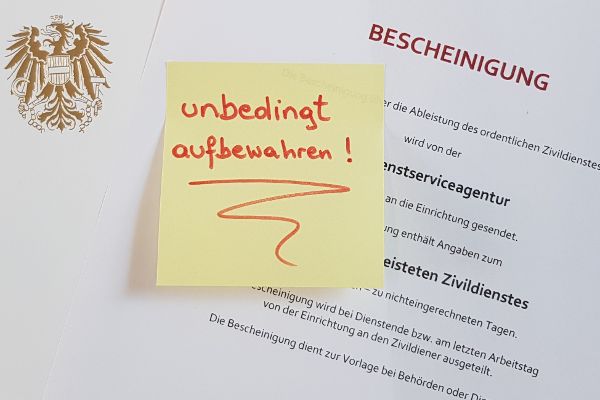 BESCHEINIGUNG
unbedingt
aufbewahren !
Die Bescheinigung über die Ableistung des ordentlichen Zivildienstes
wird von der
enstserviceagentur
an die Einrichtung gesendet.
ung enthält Angaben zum
eisteten Zivildienstes
en – zu nichteingerechneten Tagen.
escheinigung wird bei Dienstende bzw. am letzten Arbeitstag
von der Einrichtung an den Zivildiener ausgeteilt.
Die Bescheinigung dient zur Vorlage bei Behörden oder Die